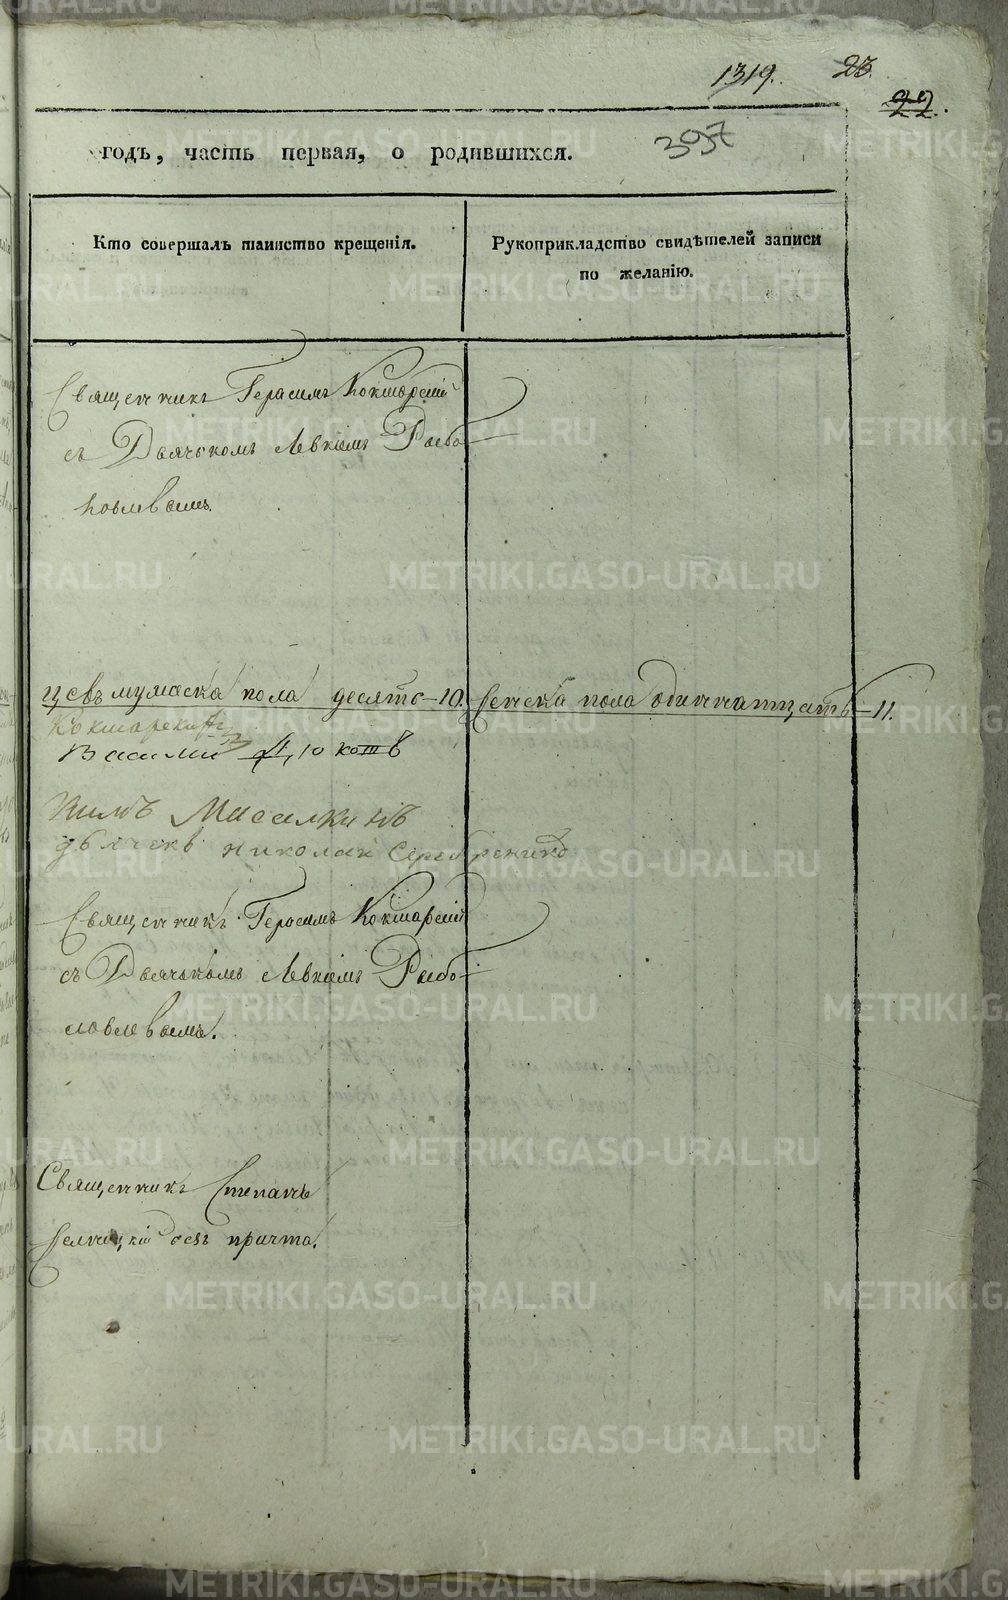 1319. 23.
22.
годъ, часть первая, о родившихся. 397
Кто совершалъ таинство крещенія.
Рукоприкладство свидѣтелей записи
по желанію.
Священникъ Герасимъ Кокшарскій
съ Дьячькомъ Левкіемъ Рыбо
ловлевымъ.
мужеска пола десять - 10. женска пола одиннатцать - 11.
Василий
Масалкинъ
дьячекъ николаи Серебреников
Священникъ Герасимъ Кокшарскій
съ Дьячькомъ Левкіемъ Рыбо
ловлевымъ.
Священникъ Степанъ
безъ причта.
METRIKI.GASO-URAL.RU